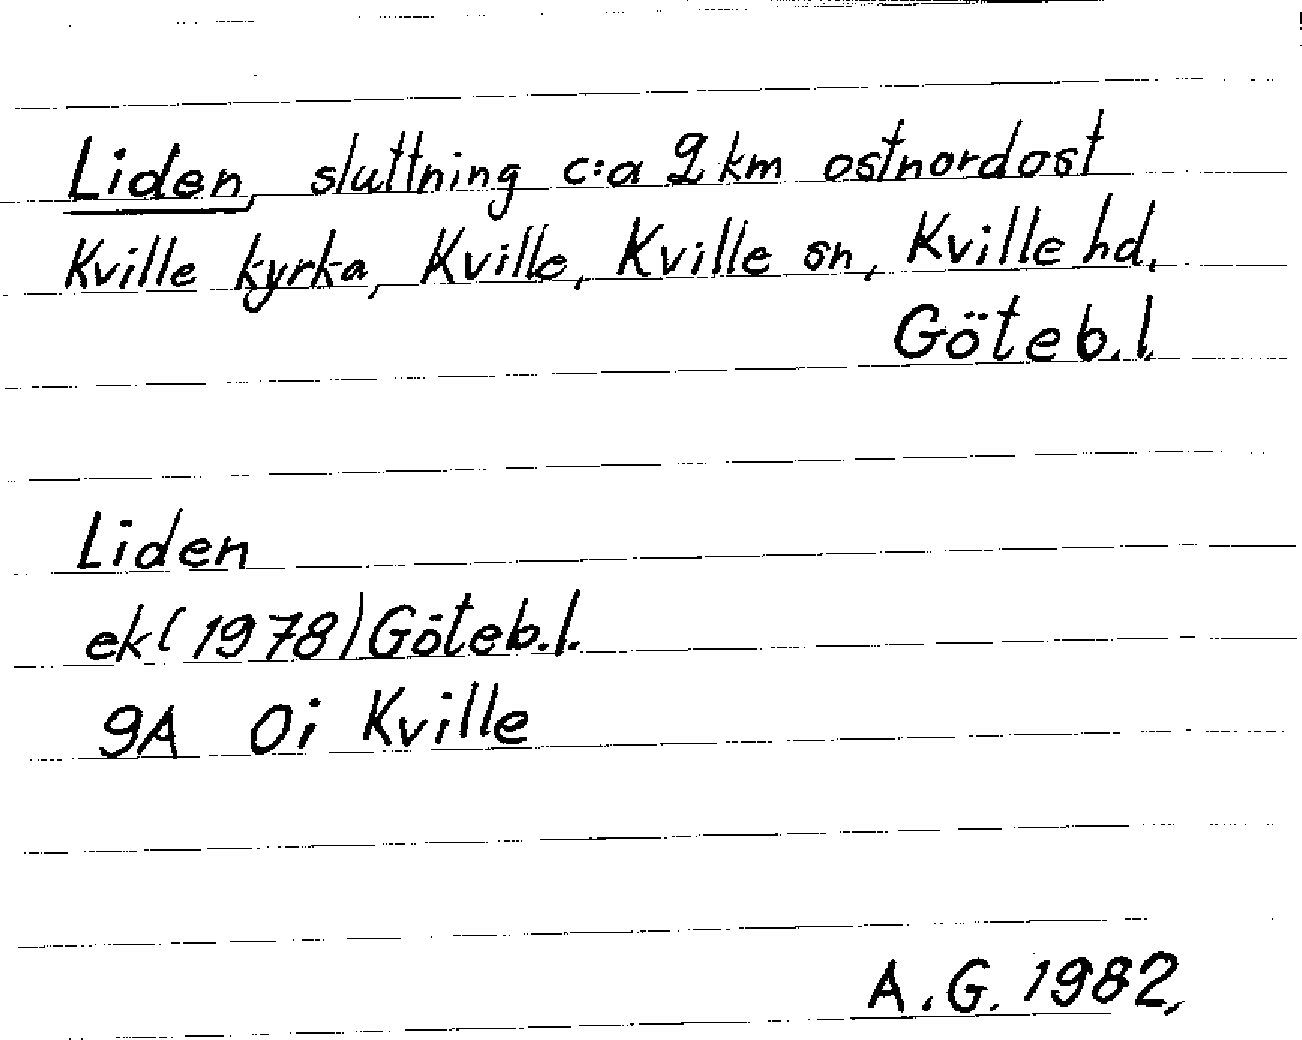 Liden, sluttning c:a 2 km ostnordost
Kville kyrka, Kville, Kville sn, Kville hd.
Göteb.l.
Liden
ek (1978) Göteb.l.
9A 0i Kville
A.G. 1982.